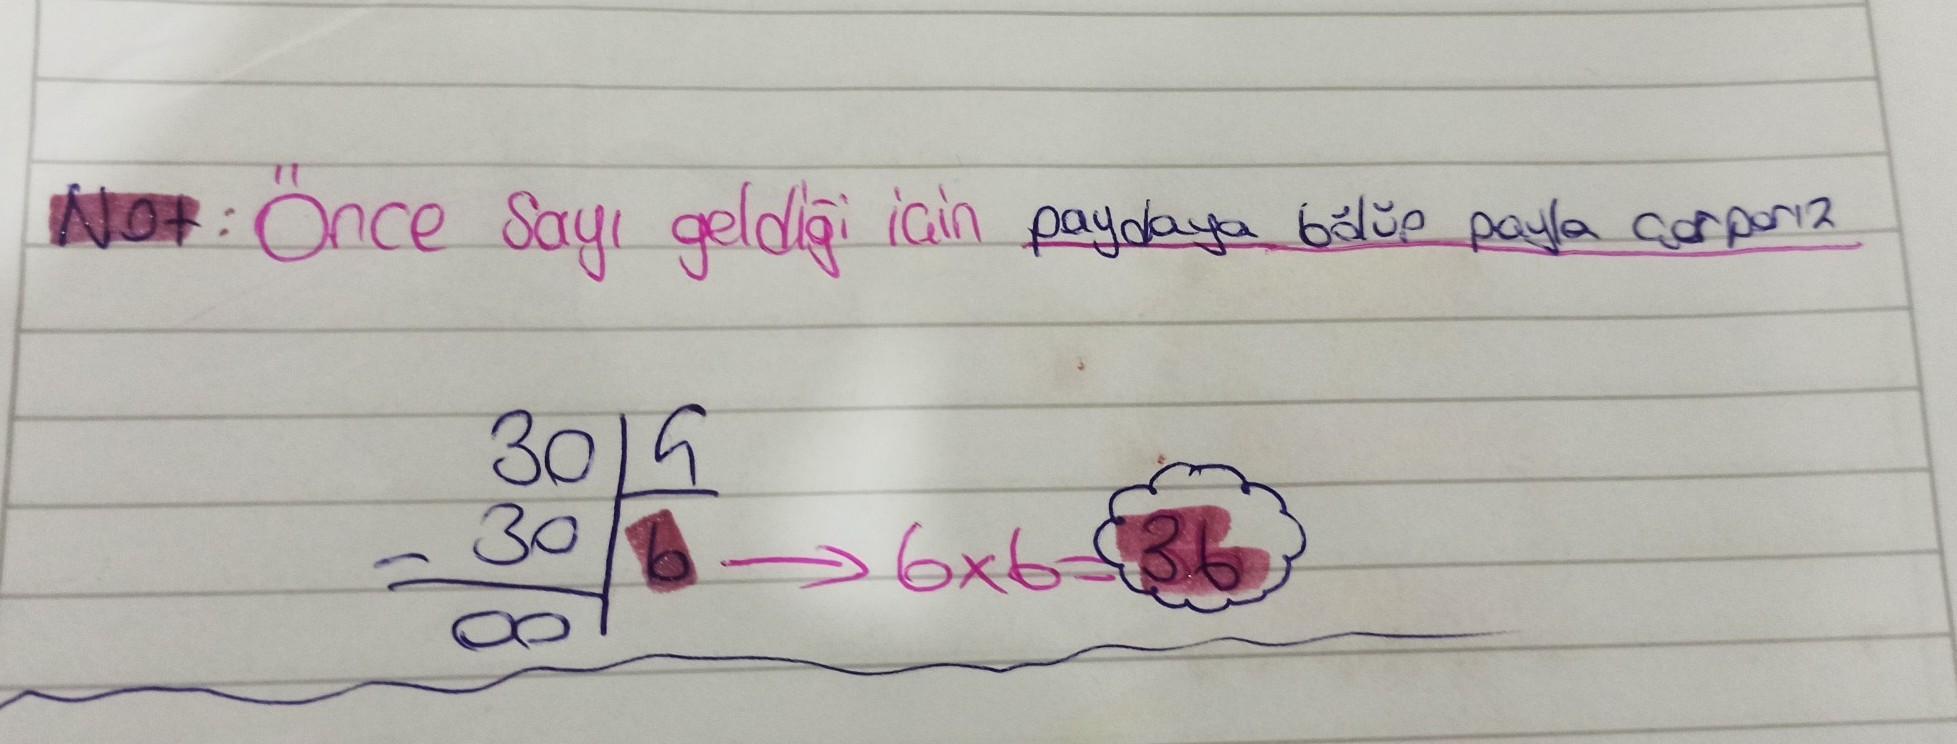 Not: Önce Sayı geldiği için paydaya bölüp payla çarparız
30 5
- 30 6 → 6x6=36
00